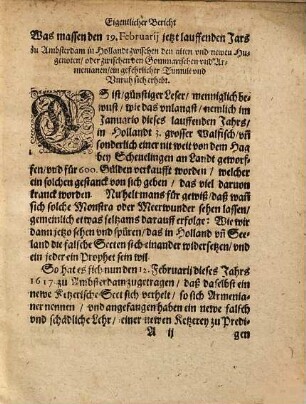 Eigentlicher Bericht
Was massen den 19. Februarij jetzt lauffenden Jars
zu Ambsterdam in Hollandt zwischen den alten vnd newen Hu-
genoten/ oder zwischen den Gommarschen vnd Ar-
menianen/ ein gefehrlicher Tumult vnd
Vnruh sich erhebt.
ES ist/ günstiger Leser/ menniglich be-
wust/ wie das vnlangst/ nemlich im
Januario dieses lauffenden Jahrs/
in Hollandt 3. grosser Walfisch/ vñ
sonderlich einer nit weit von dem Hag
bey Schevelingen an Landt geworf-
fen/ vnd für 600. Gülden verkaufft worden/ welcher
ein solchen gestanck von sich geben/ das viel darvon
kranck worden. Nu helt mans für gewiß/ daß wañ
sich solche Monstra oder Meerwunder sehen lassen/
gemeinlich etwas seltzams darauff erfolge: Wie wir
dann jetzo sehen vnd spüren/ das in Holland vñ See-
land die falsche Secten sich einander widersetzen/ vnd
ein jeder ein Prophet sein wil.
So hat es sich nun den 12. Februarii dieses Jahrs
1617. zu Ambsterdam zugetragen/ daß daselbst ein
newe Ketzerische Sect sich verhelt/ so sich Armenia-
ner nennen/ vnd angefangen haben ein newe falsch
vnd schädliche Lehr/ einer newen Ketzerey zu Predi-
A ij
gen